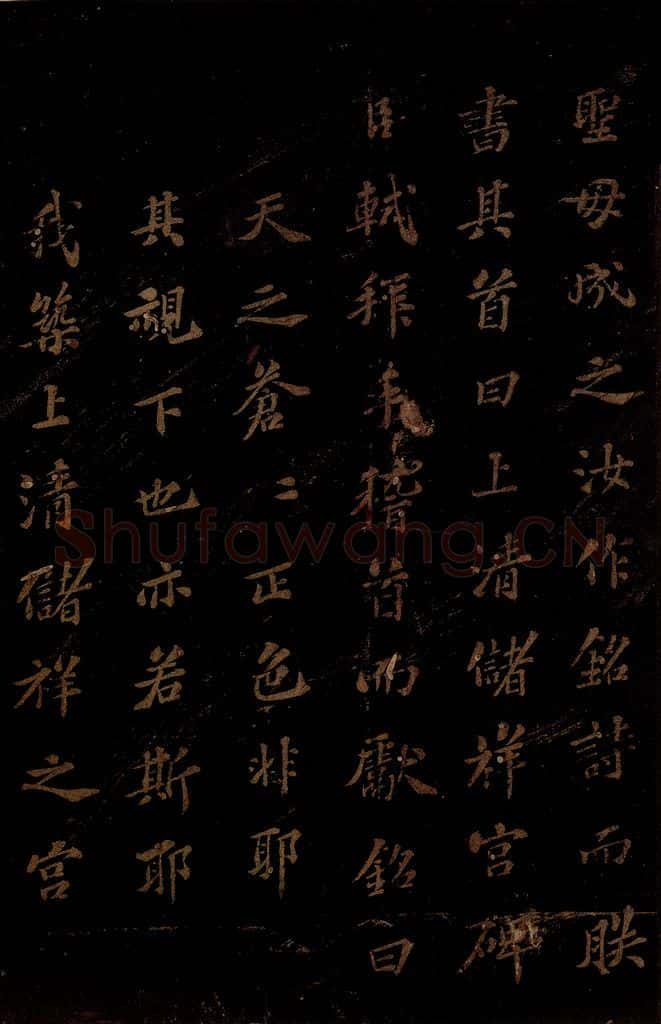 聖母成之汝作銘詩而朕
書其首曰上清儲祥宮碑
臣軾拜手稽首而獻銘曰
天之蒼〻正色非耶
其視下也亦若斯耶
我築上清儲祥之宮
Shufawang.CN